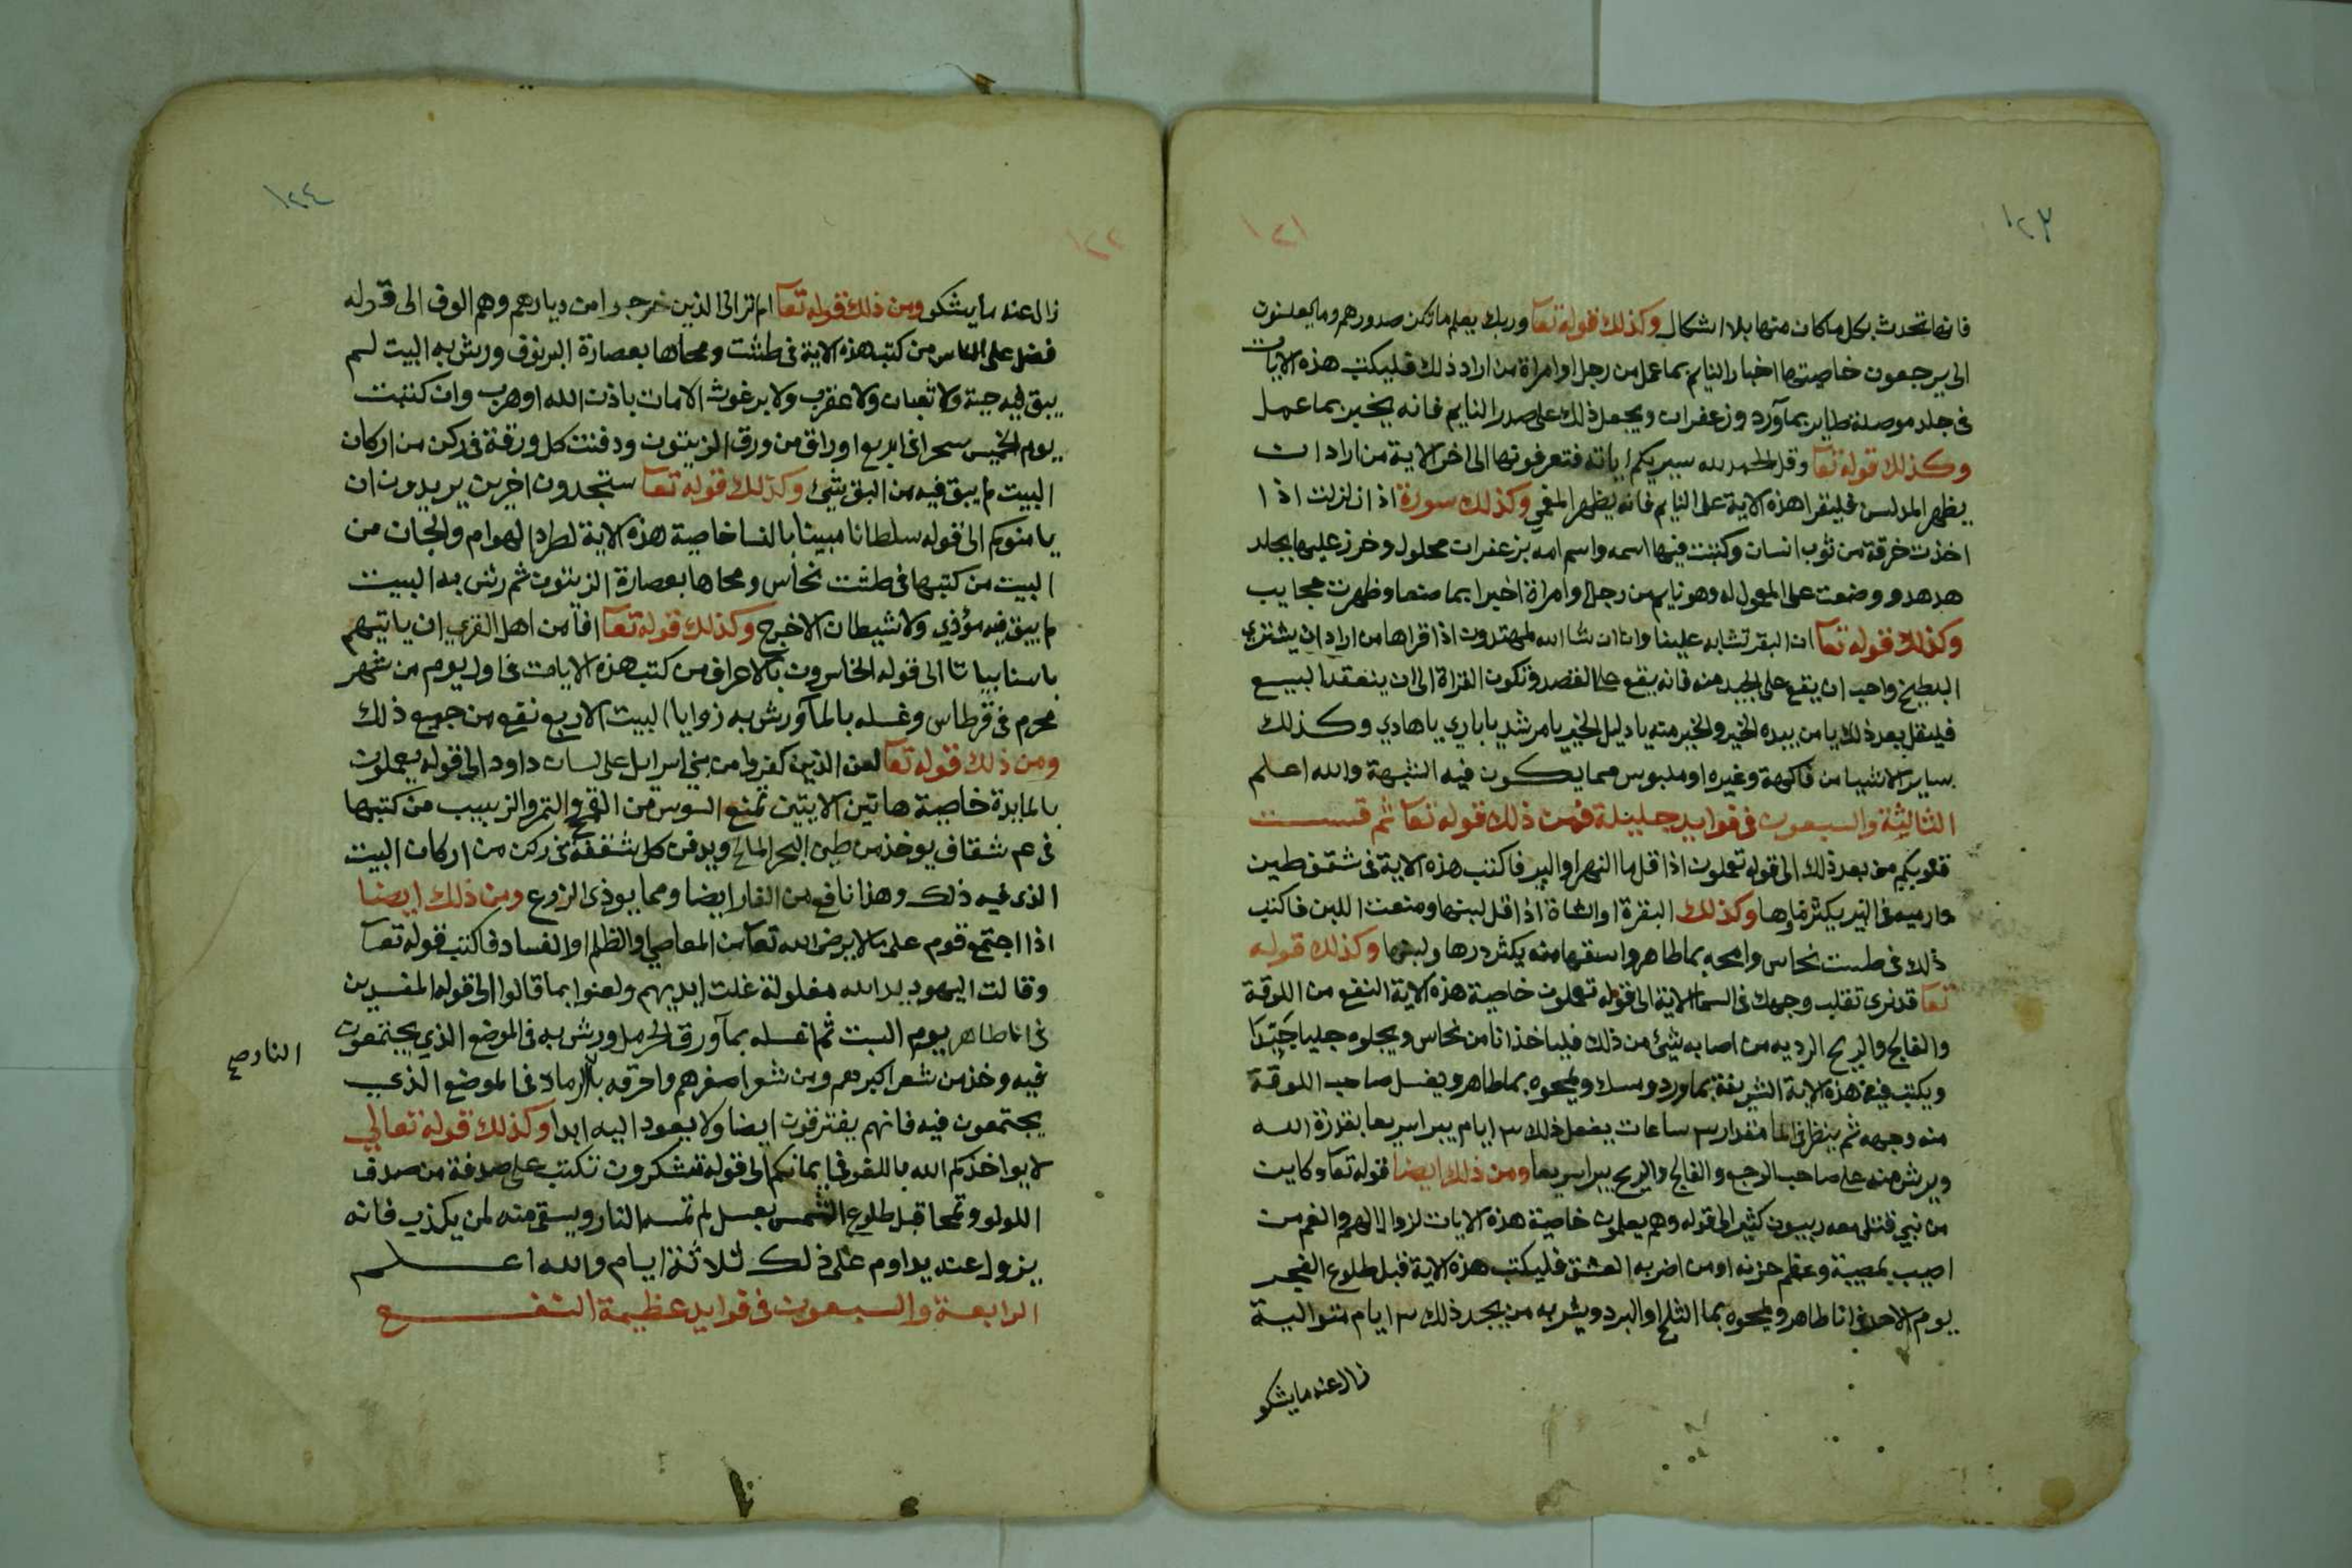 ١٢٣
١٢١
فانها تحدث بكل ما كان منها بلا اشكال وكذلك قوله تعا وربك يعلم ما تكن صدورهم وما يعلنون
الى يرجعون خاصيتها اخبار النايم بما عمل من رجل او امراة من اراد ذلك فليكتب هذه الايات
فى جلد موصلة طاير بمآورد وزعفران ويجعل ذلك على صدر النايم فانه يخبر بما عمل
وكذلك قوله تعا وقل الحمد لله سيريكم اياته فتعرفونها الى اخر الاية من اراد ان
يظهر المدلس فليقرا هذه الاية على النايم فانه يظهر المغمي وكذلك سورة اذا زلزلت اذا
اخذت خرقة من ثوب انسان وكتبت فيها اسمه واسم امه بزعفران محلول وخرز عليها بجلد
هدهد ووضعت على المعمول له وهو نايم من رجل او امراة اخبرا بما صنعا وظهرت عجايب
وكذلك قوله تعا ان البقر تشابه علينا وانا ان شا الله لمهتدون اذا قراها من اراد ان يشتري
البطيخ واحب ان يقع على الجيد منه فانه يقع على القصد وتكون القراة الى ان ينعقد البيع
فليقل بعد ذلك يا من بيده الخير والخير منه يا دليل الخير يا مرشد يا باري يا هادي وكذلك
ساير الاشيا من فاكهة وغيره او ملبوس مما يكون فيه الشبهة والله اعلم
الثالثة والسبعون فى فوايد جليلة فمن ذلك قوله تعا ثم قست
قلوبكم من بعد ذلك الى قوله تعملون اذا قل ما النهر او البير فاكتب هذه الاية فى شقف طين
وارميه فى البير يكثر ماوها وكذلك البقرة او الشاة اذا قل لبنها ومنعت اللبن فاكتب
ذلك فى طست نحاس وامحه بما طاهر واسقها منه يكثر درها ولبنها وكذلك قوله
تعا قد نرى تقلب وجهك فى السما الاية الى قوله تعملون خاصية هذه الاية النفع من اللوقة
والفالج والريح الرديه من اصابه شيئ من ذلك فلياخذ انا من نحاس ويجلوه جليا جَيّدًا
ويكتب فيه هذه الاية الشريفة بماورد ومسك ويمحوه بما طاهر ويغسل صاحب اللوقة
منه وجهه ثم ينظر فى الما مقدار ٣ ساعات يفعل ذلك ٣ ايام يبرا سريعا بقدرة الله
ويرش منه على صاحب الوجع والفالج والريح يبرا سريعا ومن ذلك ايضا قوله تعا وكاين
من نبي قتل معه ربيون كثير الى قوله وهم يعلمون خاصية هذه الايات لزوال الهم والغم من
اصيب بمصيبة وعظم حزنه او من اضر به العشق فليكتب هذه الاية قبل طلوع الفجر
يوم الاحد فى انا طاهر ويمحوه بما الثلج او البرد ويشربه من يجد ذلك ٣ ايام متوالية
زال عنه ما يشكو
١٢٤
١٢٢
زال عنه ما يشكو ومن ذلك قوله تعا الم تر الى الذين خرجوا من ديارهم وهم الوف الى قوله
فضل على الناس من كتب هذه الاية فى طشت ومحاها بعصارة البرنوف ورش به البيت لم
يبق فيه حية ولا ثعبان ولا عقرب ولا برغوث الا مات باذن الله او هرب وان كتبت
يوم الخميس سحرا فى اربع اوراق من ورق الزيتون ودفنت كل ورقة فى ركن من اركان
البيت لم يبق فيه من البق شيئ وكذلك قوله تعا ستجدون اخرين يريدون ان
يامنوكم الى قوله سلطانا مبينا بالنسا خاصية هذه الاية لطرد الهوام والجان من
البيت من كتبها فى طشت نحاس ومحاها بعصارة الزيتون ثم رش به البيت
لم يبق فيه مؤذي ولا شيطان الا خرج وكذلك قوله تعا افامن اهل القري ان ياتيهم
باسنا بياتا الى قوله الخاسرون بالاعراف من كتب هذه الايات فى اول يوم من شهر
محرم فى قرطاس وغسله بالمآ ورش به زوايا البيت الاربع نقع من جميع ذلك
ومن ذلك قوله تعا لعن الذين كفروا من بني اسرايل على لسان داود الى قوله يعملون
بالمايدة خاصية هاتين الايتين تمنع السوس من القمح والتمر والزبيب من كتبها
فى ٤ شقاف يوخذ من طين البحر المالح ويدفن كل شقفة فى ركن من اركان البيت
الذى فيه ذلك وهذا نافع من الفار ايضا ومما يوذى الزرع ومن ذلك ايضا
اذا اجتمع قوم على ما لا يرضى الله تعا من المعاصي والظلم او الفساد فاكتب قوله تعا
وقالت اليهود يد الله مغلولة غلت ايديهم ولعنوا بما قالوا الى قوله المفسدين
فى انا طاهر يوم السبت ثم اغسله بمآ ورق الحرمل ورش به فى الموضع الذي يجتمعون
فيه وخذ من شعر اكبرهم ومن شعر اصغرهم واحرقه بالرماد فى الموضع الذي
النار صح
يجتمعون فيه فانهم يفترقون ايضا ولا يعود اليه ابدا وكذلك قوله تعالي
لا يواخذكم الله باللغو فى ايمانكم الى قوله تشكرون تكتب على صدفة من صدف
اللولو وتمحا قبل طلوع الشمس بعسل لم تمسه النار ويسقى منه لمن يكذب فانه
يزول عنه يداوم على ذلك ثلاثة ايام والله اعلم
الرابعة والسبعون فى فوايد عظيمة النفع